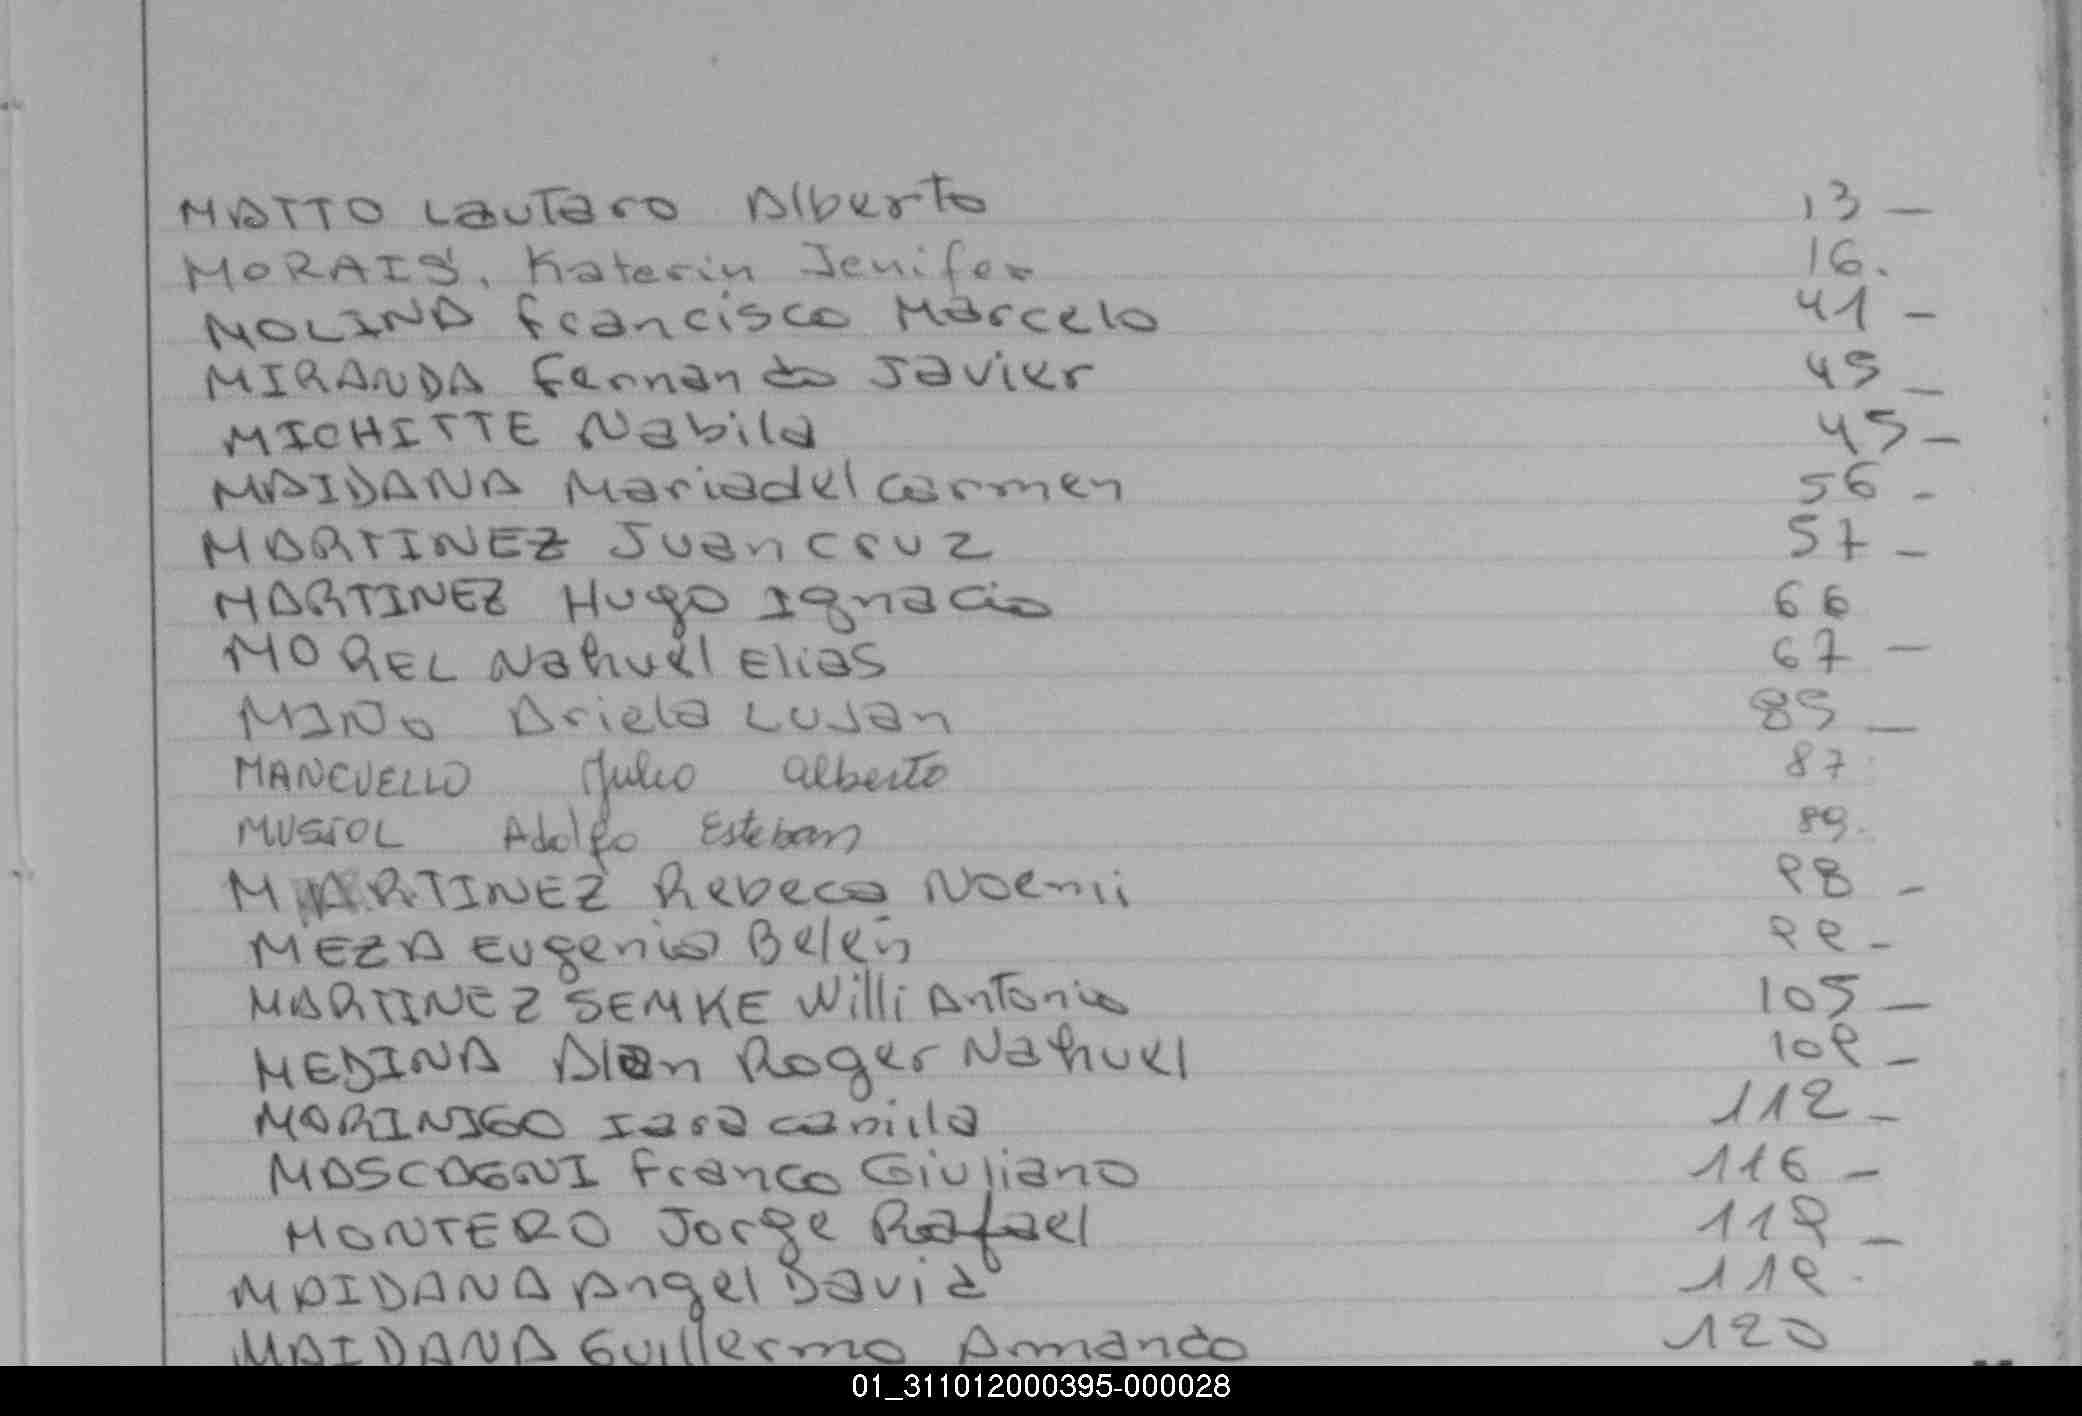 MATTO Lautaro Alberto 13 —
MORAIS, Katerin Jenifer 16.
MOLINA Francisco Marcelo 41 —
MIRANDA Fernando Javier 45 —
MICHITTE Nabila 45 —
MAIDANA Maria del Carmen 56 -
MARTINEZ Juan Cruz 57 —
MARTINEZ Hugo Ignacio 66
MOREL Nahuel Elias 67 —
MINO Ariela Lujan 85 —
MANCUELLO Julio Alberto 87
MUSIOL Adolfo Esteban 89.
MARTINEZ Rebeca Noemi 98 -
MEZA Eugenia Belen 99 -
MARTINEZ SEMKE Willi Antonio 105 —
MEDINA Alan Roger Nahuel 109 —
MORINIGO Iara Camila 112 —
MASCAGNI Franco Giuliano 116 —
MONTERO Jorge Rafael 119 —
MAIDANA Angel David 119.
MAIDANA Guillermo Armando 120
01_311012000395-000028